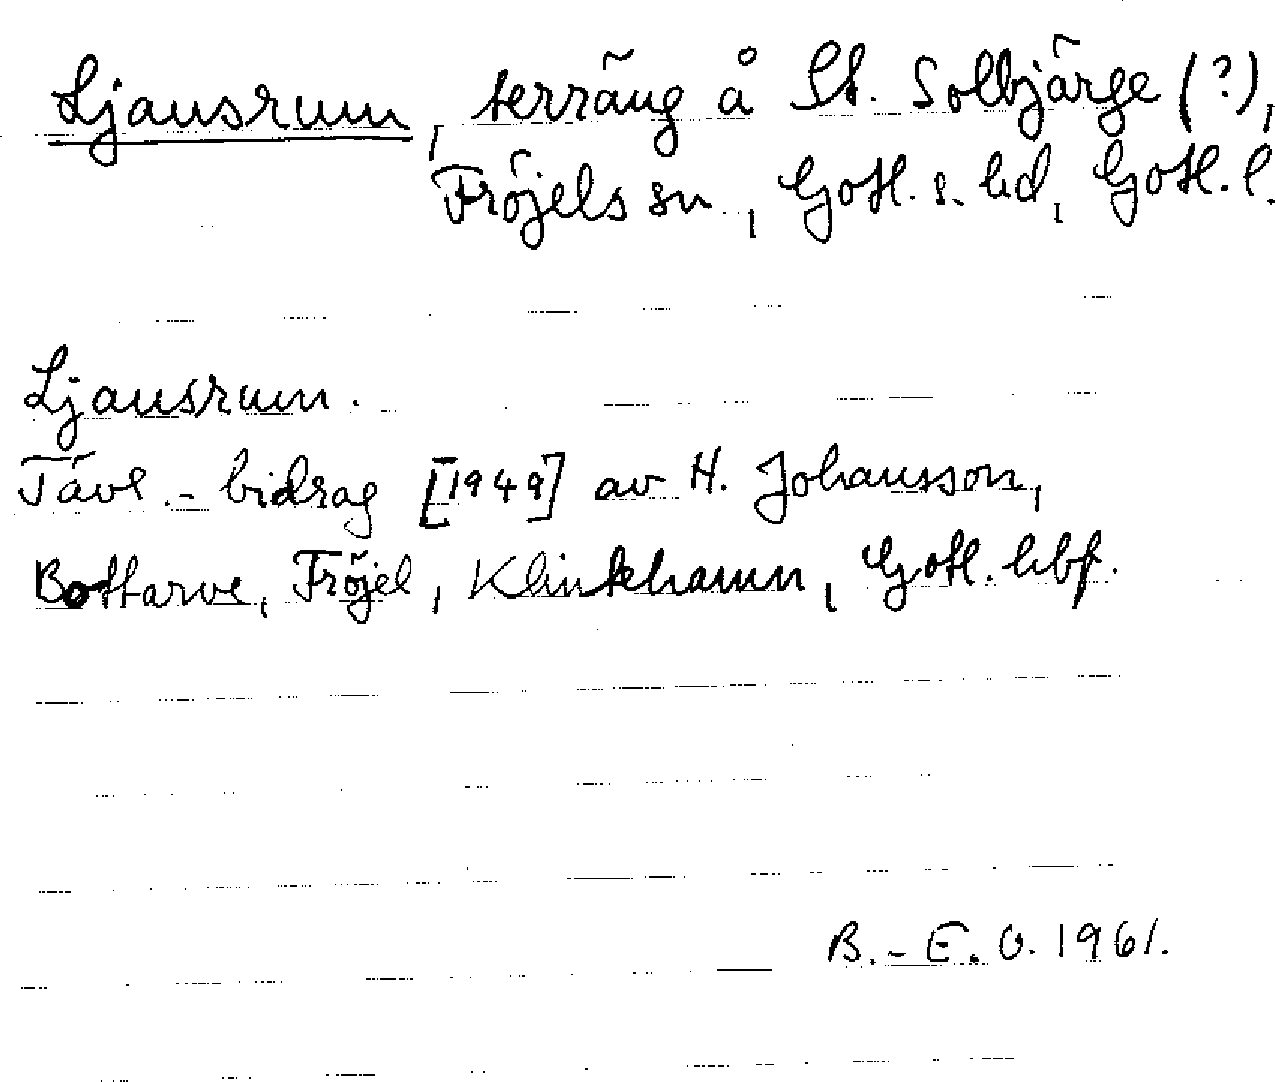 Ljausrum, terräng å St. Solbjärge (?),
Fröjels sn., Gotl. s. hd, Gotl. l.
Ljausrum.
Tävl.- bidrag [1949] av H. Johansson,
Bottarve, Fröjel, Klintehamn, Gotl. hbf.
B.-E. O. 1961.